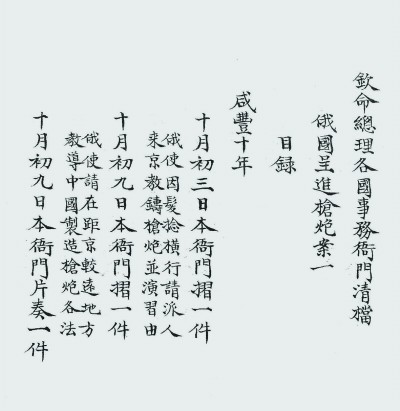 欽命總理各國事務衙門清檔
俄國呈進槍炮案一
目録
咸豐十年
十月初三日本衙門摺一件
俄使因髮捻橫行請派人
來京教鑄槍炮並演習由
十月初九日本衙門摺一件
俄使請在距京較遠地方
教導中國製造槍炮各法
十月初九日本衙門片奏一件